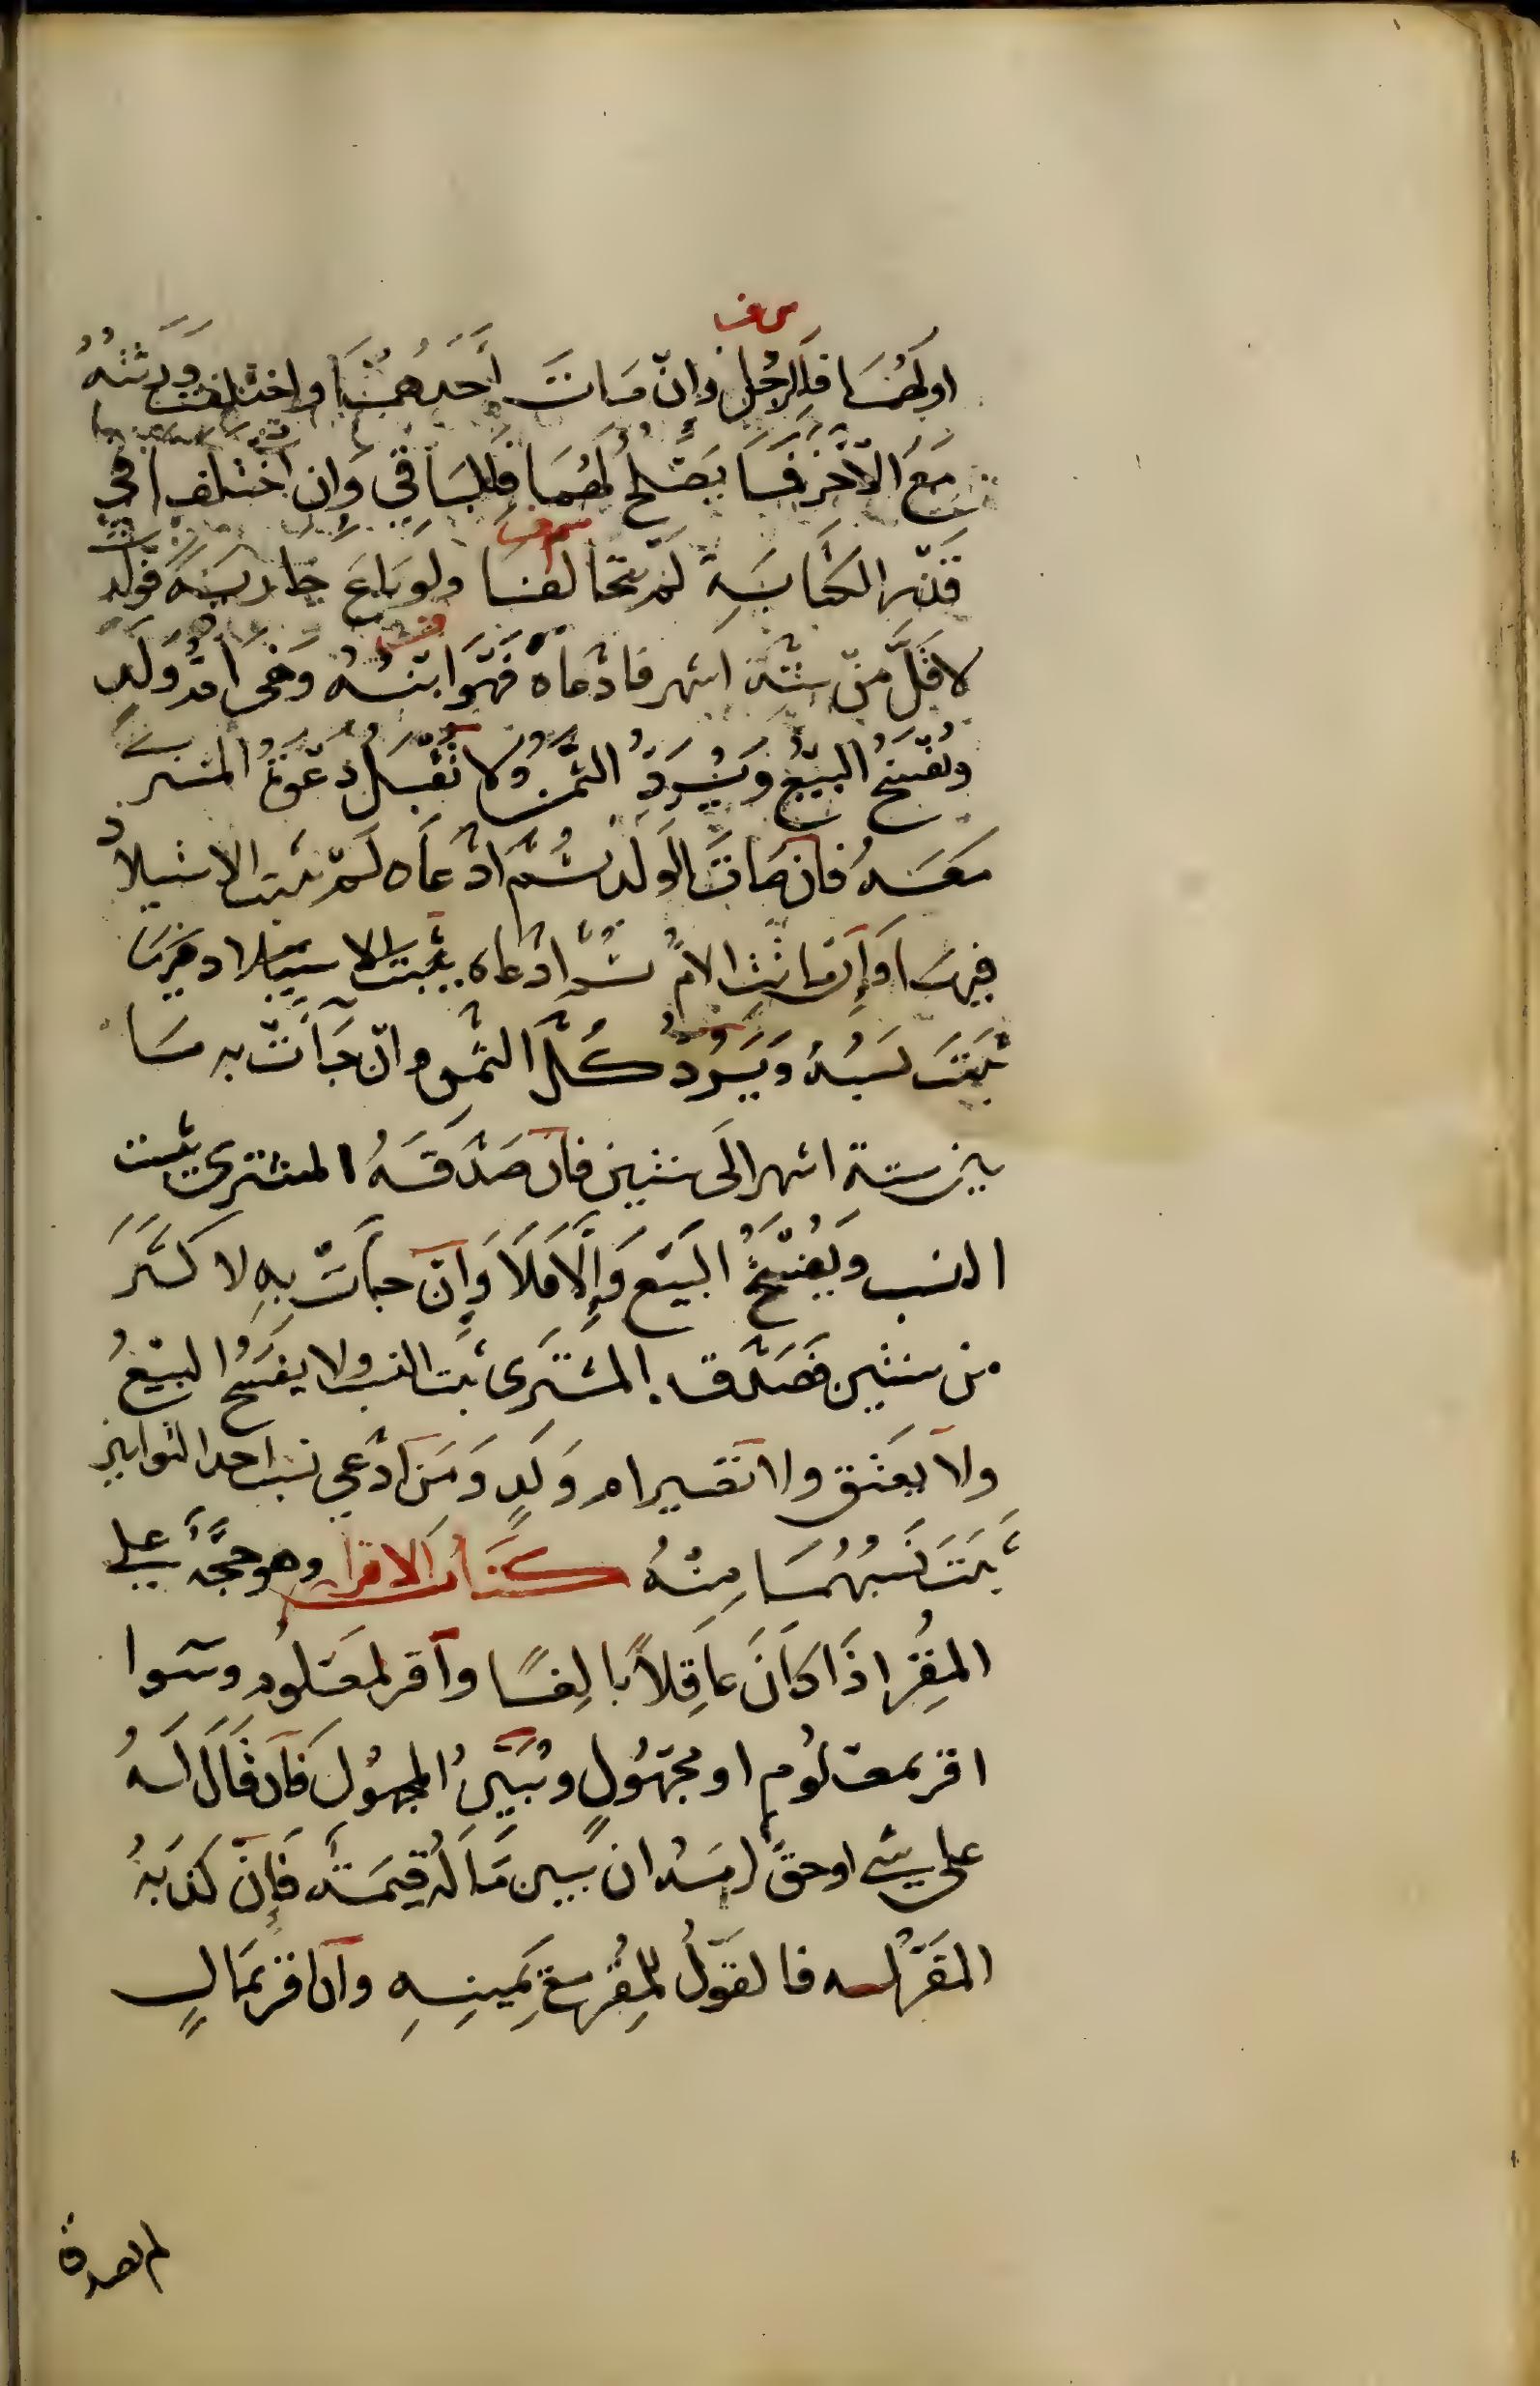 اولهما فللرجل وإن مات أحدهما واختلف ورثته
مع الآخر فما يصلح لهما فللباقي وإن اختلفا في
قدر الكتابة لم يتحالفا ولو باع جارية فولدت
لاقل من ستة اشهر فادعاه فهو ابنه وهي ام ولد
ويفسخ البيع ويرد الثمن ولا تقبل دعوة المشتري
معه فإن مات الولد ثم ادعاه لم يثبت الاستيلاد
فيها وإن ماتت الام ثم ادعاه يثبت الاستيلاد فيها
يثبت نسبه ويرد كل الثمن وان جاءت به ما
بين ستة اشهر الى سنتين فان صدقه المشتري يثبت
النسب ويفسخ البيع وإلا فلا وإن جاءت به لاكثر
من سنتين فصدقه المشتري ثبت النسب ولا يفسخ البيع
ولا يعتق ولا تصير ام ولد ومن ادعى نسب احد التوأمين
ثبت نسبهما منه كتاب الاقرار وهو حجة على
المقر اذا كان عاقلا بالغا وأقر لمعلوم وسوا
اقر بمعلوم او مجهول ويبين المجهول فان قال له
على شي او حق لزمه ان يبين ما له قيمة فإن كذبه
المقر له فالقول للمقر مع يمينه وان اقر بمال
لم يصدق